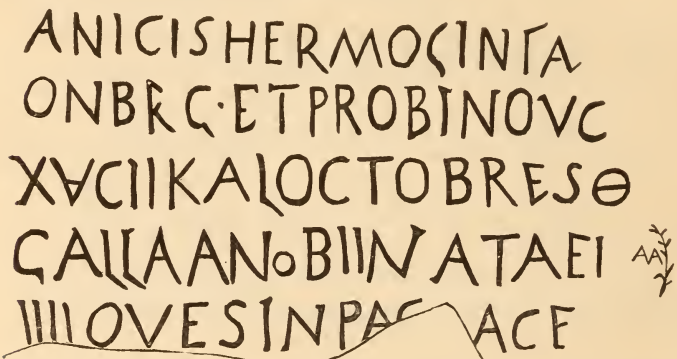 ANICISHERMOGINΓA
ONBRG·ETPROBINOVC
X∀CIIKALOCTOBRESΘ
GALLAANoBIINATAEI AA
IIIIOVESINPAC ACE